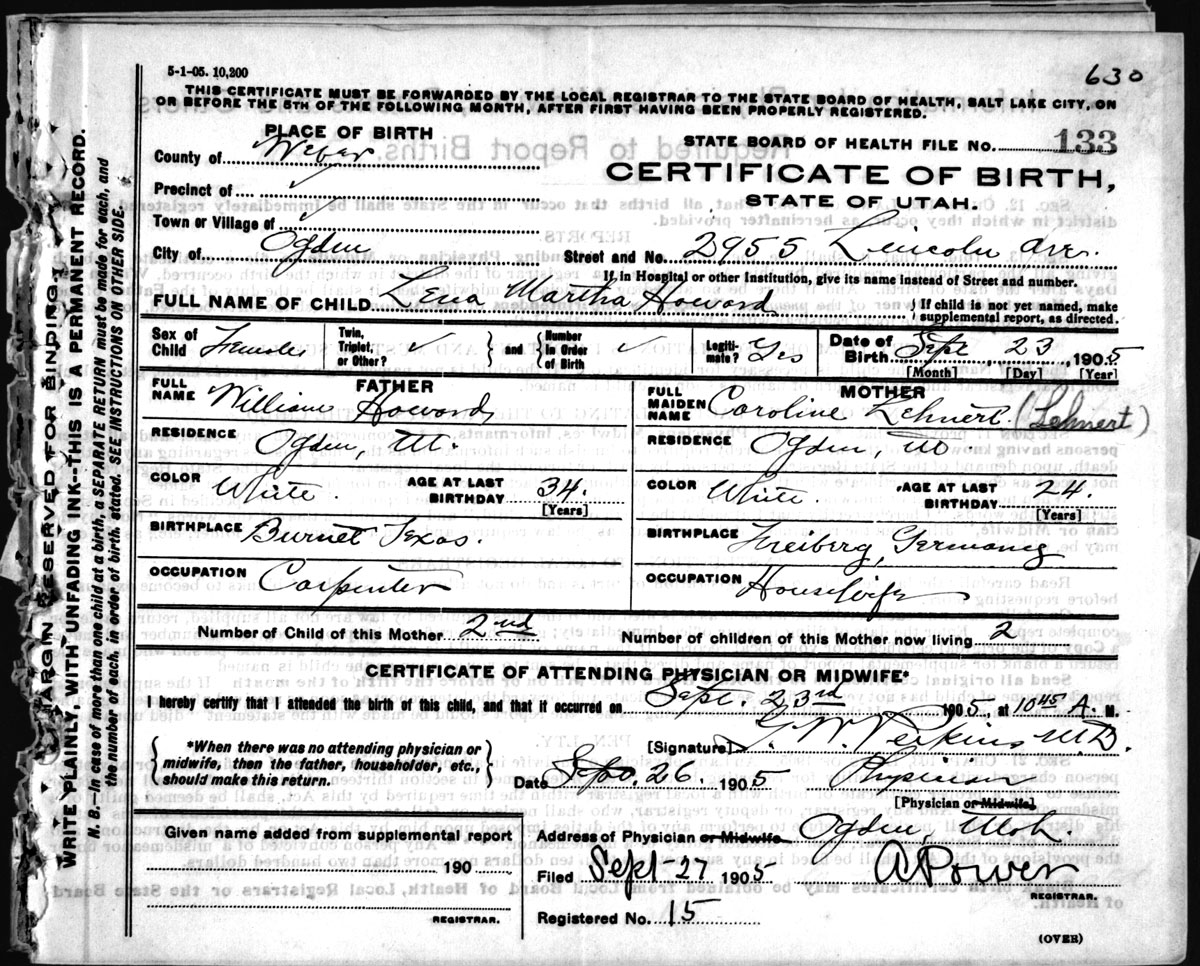 5-1-05. 10,200
630
THIS CERTIFICATE MUST BE FORWARDED BY THE LOCAL REGISTRAR TO THE STATE BOARD OF HEALTH, SALT LAKE CITY, ON
OR BEFORE THE 5TH OF THE FOLLOWING MONTH, AFTER FIRST HAVING BEEN PROPERLY REGISTERED.
PLACE OF BIRTH
County of Weber
Precinct of ✓
Town or Village of ✓
City of Ogden
STATE BOARD OF HEALTH FILE No. 133
CERTIFICATE OF BIRTH,
STATE OF UTAH.
Street and No. 2955 Lincoln Ave.
If in Hospital or other Institution, give its name instead of Street and number.
FULL NAME OF CHILD Lena Martha Howard
If child is not yet named, make
supplemental report, as directed.
Sex of Child Female
Twin, Triplet, or Other? ✓
and Number in Order of Birth ✓
Legitimate? Yes
Date of Birth Sept 23, 1905
[Month] [Day] [Year]
FATHER
FULL NAME William Howard
RESIDENCE Ogden, Ut.
COLOR White. AGE AT LAST BIRTHDAY 34.
[Years]
BIRTHPLACE Burnet Texas.
OCCUPATION Carpenter
MOTHER
FULL MAIDEN NAME Caroline Lehnert. (Lehnert)
RESIDENCE Ogden, Ut.
COLOR White. AGE AT LAST BIRTHDAY 24.
[Years]
BIRTHPLACE Freiberg, Germany
OCCUPATION Housewife
Number of Child of this Mother 2nd
Number of children of this Mother now living 2
CERTIFICATE OF ATTENDING PHYSICIAN OR MIDWIFE*
I hereby certify that I attended the birth of this child, and that it occurred on Sept. 23rd 1905, at 10 45 A. M.
*When there was no attending physician or
midwife, then the father, householder, etc.,
should make this return.
[Signature] W. Perkins M.D.
Date Sept. 26 1905 Physician
[Physician or Midwife]
Given name added from supplemental report
190
REGISTRAR.
Address of Physician or Midwife Ogden Utah.
Filed Sept-27 1905 A Power
REGISTRAR.
Registered No. 15
(OVER)
MARGIN RESERVED FOR BINDING.
WRITE PLAINLY, WITH UNFADING INK--THIS IS A PERMANENT RECORD.
N. B.--In case of more than one child at a birth, a SEPARATE RETURN must be made for each, and
the number of each, in order of birth, stated. SEE INSTRUCTIONS ON OTHER SIDE.